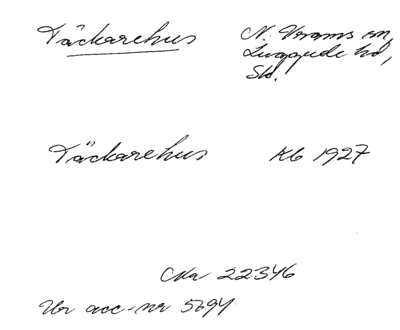 Täckarehus N. Vrams sn,
Luggude hd,
Sk.
Täckarehus Kb 1927
22346
Ur acc-nr 5694